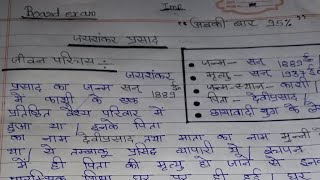 Board exam
Imp
"अबकी बार 95%"
जयशंकर प्रसाद
जीवन परिचय :-
जयशंकर
प्रसाद का जन्म सन् 1889 ई०
में काशी के एक
प्रतिष्ठित वैश्य परिवार में
हुआ था। इनके पिता
का नाम देवीप्रसाद तथा माता का नाम मुन्नी
था। ये तम्बाकू व्यापारी थे। बचपन
में ही पिता की मृत्यु हो जाने से इनका
जन्म - सन् 1889 ई०
मृत्यु - सन् 1937 ई०
जन्म-स्थान - काशी
पिता - देवीप्रसाद
छायावादी युग के